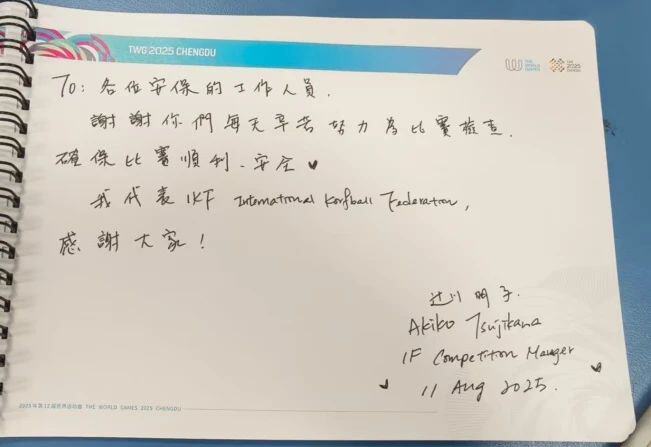 TWG 2025 CHENGDU
THE WORLD GAMES
THE 2025 CHENGDU
To: 各位安保的工作人員.
謝謝你們每天辛苦努力為比賽檢查.
確保比賽順利、安全♥
我代表 IKF International Korfball Federation,
感謝大家!
辻川明子.
Akiko Tsujikawa
IF Competition Manager
11 Aug 2025.
2025年第12届世界运动会 THE WORLD GAMES 2025 CHENGDU